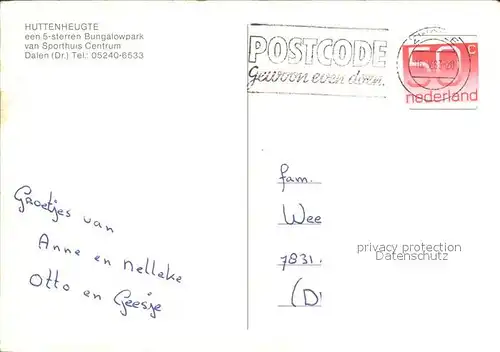 HUTTENHEUGTE
een 5-sterren Bungalowpark
van Sporthuis Centrum
Dalen (Dr.) Tel.: 05240-6533
POSTCODE
Gewoon even doen.
50 c
nederland
fam.
Wee
7831.
(D
privacy protection
Datenschutz
Groetjes van
Anne en Nelleke
Otto en Geesje